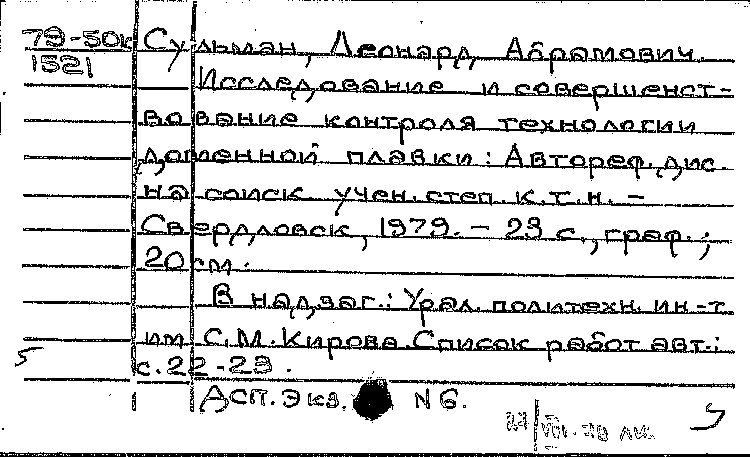 79-50к Сульман, Леонард Абрамович.
1521
Исследование и совершенст-
вование контроля технологии
доменной плавки: Автореф. дис.
на соиск. учен. степ. к.т.н. -
Свердловск, 1979. - 23 с., граф.;
20 см.
В надзаг.: Урал. политехн. ин-т
им С.М. Кирова. Список работ авт.:
с. 22-23.
Дсп. Экз. N 6.